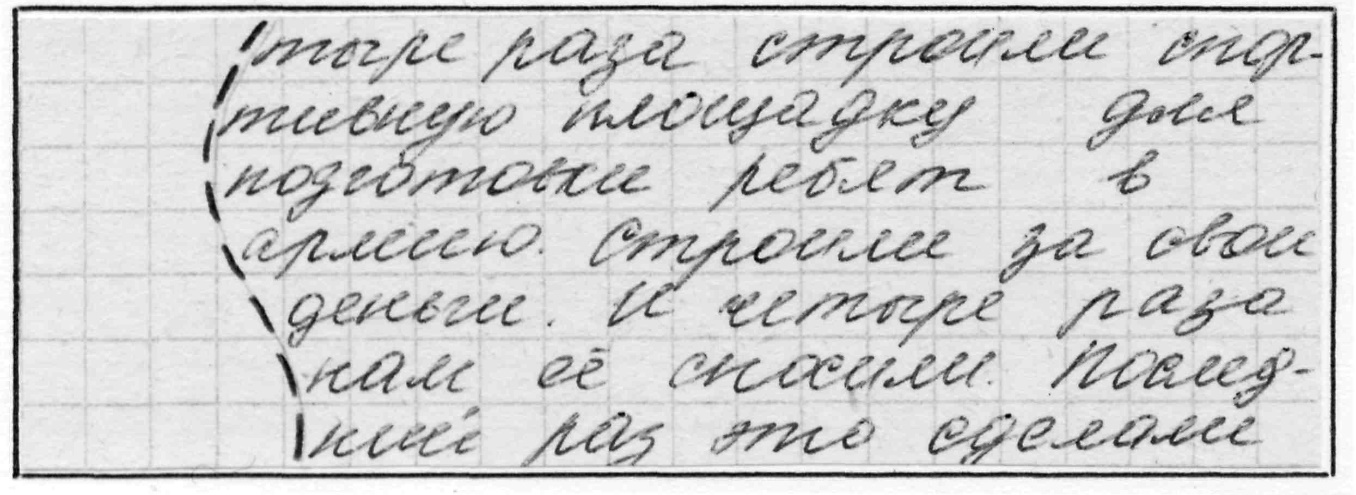 тыре раза строили спор-
тивную площадку для
подготовки ребят в
армию. Строили за свои
деньги. И четыре раза
нам её сносили. Послед-
ний раз это сделали